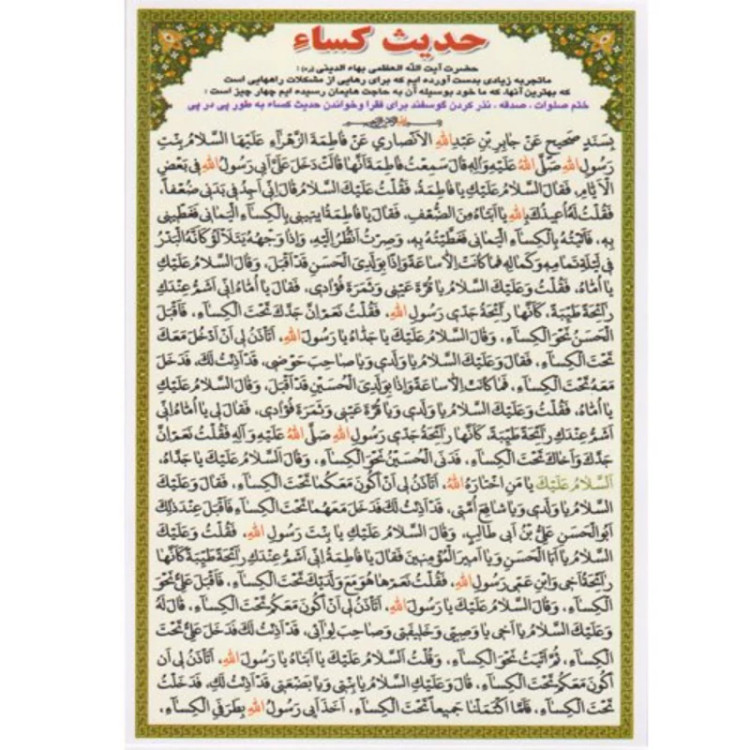 حدیث کساء
حضرت آیت الله العظمی بهاء الدینی (ره) :
ماتجربه زیادی بدست آورده ایم که برای رهایی از مشکلات راههایی است
که بهترین آنها، که ما خود بوسیله آن به حاجت هایمان رسیده ایم چهار چیز است :
ختم صلوات ، صدقه ، نذر کردن گوسفند برای فقرا و خواندن حدیث کساء به طور پی در پی
بِسَنَدٍ صَحیحٍ عَنْ جابِرِ بْنِ عَبْدِ اللهِ الْاَنْصاری عَنْ فاطِمَةَ الزَّهْرآءِ عَلَیْهَا السَّلامُ بِنْتِ
رَسُولِ اللهِ صَلَّی اللهُ عَلَیْهِ وَآلِهِ قالَ سَمِعْتُ فاطِمَةَ اَنَّها قالَتْ دَخَلَ عَلَیَّ اَبی رَسُولُ اللهِ فی بَعْضِ
الْاَیّامِ، فَقالَ السَّلامُ عَلَیْكِ یا فاطِمَةُ، فَقُلْتُ عَلَیْكَ السَّلامُ قالَ اِنّی اَجِدُ فی بَدَنی ضُعْفاً،
فَقُلْتُ لَهُ اُعیذُكَ بِاللهِ یا اَبَتاهُ مِنَ الضُّعْفِ، فَقالَ یا فاطِمَةُ ایتینی بِالْكِسآءِ الْیَمانی فَغَطّینی
بِهِ، فَاَتَیْتُهُ بِالْكِسآءِ الْیَمانی فَغَطَّیْتُهُ بِهِ، وَصِرْتُ اَنْظُرُ اِلَیْهِ، وَاِذا وَجْهُهُ یَتَلَأْلَؤُ كَاَنَّهُ الْبَدْرُ
فی لَیْلَةِ تَمامِهِ وَكَمالِهِ فَما كانَتْ اِلّا ساعَةً وَاِذا بِوَلَدِیَ الْحَسَنِ قَدْ اَقْبَلَ، وَقالَ السَّلامُ عَلَیْكِ
یا اُمّاهُ، فَقُلْتُ وَعَلَیْكَ السَّلامُ یا قُرَّةَ عَیْنی وَثَمَرَةَ فُؤادی، فَقالَ یا اُمّاهُ اِنّی اَشَمُّ عِنْدَكِ
رآئِحَةً طَیِّبَةً، كَاَنَّها رآئِحَةُ جَدّی رَسُولِ اللهِ، فَقُلْتُ نَعَمْ اِنَّ جَدَّكَ تَحْتَ الْكِسآءِ، فَاَقْبَلَ
الْحَسَنُ نَحْوَ الْكِسآءِ، وَقالَ السَّلامُ عَلَیْكَ یا جَدّاهُ یا رَسُولَ اللهِ، اَتَأْذَنُ لی اَنْ اَدْخُلَ مَعَكَ
تَحْتَ الْكِسآءِ، فَقالَ وَعَلَیْكَ السَّلامُ یا وَلَدی وَیا صاحِبَ حَوْضی، قَدْ اَذِنْتُ لَكَ، فَدَخَلَ
مَعَهُ تَحْتَ الْكِسآءِ، فَما كانَتْ اِلّا ساعَةً وَاِذا بِوَلَدِیَ الْحُسَیْنِ قَدْ اَقْبَلَ، وَقالَ السَّلامُ عَلَیْكِ
یا اُمّاهُ، فَقُلْتُ وَعَلَیْكَ السَّلامُ یا وَلَدی وَیا قُرَّةَ عَیْنی وَثَمَرَةَ فُؤادی، فَقالَ لی یا اُمّاهُ اِنّی
اَشَمُّ عِنْدَكِ رآئِحَةً طَیِّبَةً، كَاَنَّها رآئِحَةُ جَدّی رَسُولِ اللهِ صَلَّی اللهُ عَلَیْهِ وَآلِهِ فَقُلْتُ نَعَمْ اِنَّ
جَدَّكَ وَاَخاكَ تَحْتَ الْكِسآءِ، فَدَنَی الْحُسَیْنُ نَحْوَ الْكِسآءِ، وَقالَ اَلسَّلامُ عَلَیْكَ یا جَدّاهُ،
اَلسَّلامُ عَلَیْكَ یا مَنِ اخْتارَهُ اللهُ، اَتَأْذَنُ لی اَنْ اَكُونَ مَعَكُما تَحْتَ الْكِسآءِ، فَقالَ وَعَلَیْكَ
السَّلامُ یا وَلَدی وَیا شافِعَ اُمَّتی، قَدْ اَذِنْتُ لَكَ فَدَخَلَ مَعَهُما تَحْتَ الْكِسآءِ فَاَقْبَلَ عِنْدَ ذلِكَ
اَبُوالْحَسَنِ عَلِیُّ بْنُ اَبی طالِبٍ، وَقالَ السَّلامُ عَلَیْكِ یا بِنْتَ رَسُولِ اللهِ، فَقُلْتُ وَعَلَیْكَ
السَّلامُ یا اَبَا الْحَسَنِ وَیا اَمیرَ الْمُؤْمِنینَ فَقالَ یا فاطِمَةُ اِنّی اَشَمُّ عِنْدَكِ رآئِحَةً طَیِّبَةً كَاَنَّها
رآئِحَةُ اَخی وَابْنِ عَمّی رَسُولِ اللهِ، فَقُلْتُ نَعَمْ ها هُوَ مَعَ وَلَدَیْكَ تَحْتَ الْكِسآءِ، فَاَقْبَلَ عَلِیٌّ نَحْوَ
الْكِسآءِ، وَقالَ السَّلامُ عَلَیْكَ یا رَسُولَ اللهِ، اَتَأْذَنُ لی اَنْ اَكُونَ مَعَكُمْ تَحْتَ الْكِسآءِ، قالَ لَهُ
وَعَلَیْكَ السَّلامُ یا اَخی یا وَصِیّی وَخَلیفَتی وَصاحِبَ لِوآئی، قَدْ اَذِنْتُ لَكَ فَدَخَلَ عَلِیٌّ تَحْتَ
الْكِسآءِ، ثُمَّ اَتَیْتُ نَحْوَ الْكِسآءِ، وَقُلْتُ اَلسَّلامُ عَلَیْكَ یا اَبَتاهُ یا رَسُولَ اللهِ، اَتَأْذَنُ لی اَن
اَكُونَ مَعَكُمْ تَحْتَ الْكِسآءِ، قالَ وَعَلَیْكِ السَّلامُ یا بِنْتی وَیا بَضْعَتی قَدْ اَذِنْتُ لَكِ، فَدَخَلْتُ
تَحْتَ الْكِسآءِ، فَلَمَّا اكْتَمَلْنا جَمیعاً تَحْتَ الْكِسآءِ، اَخَذَ اَبی رَسُولُ اللهِ بِطَرَفَیِ الْكِسآءِ،